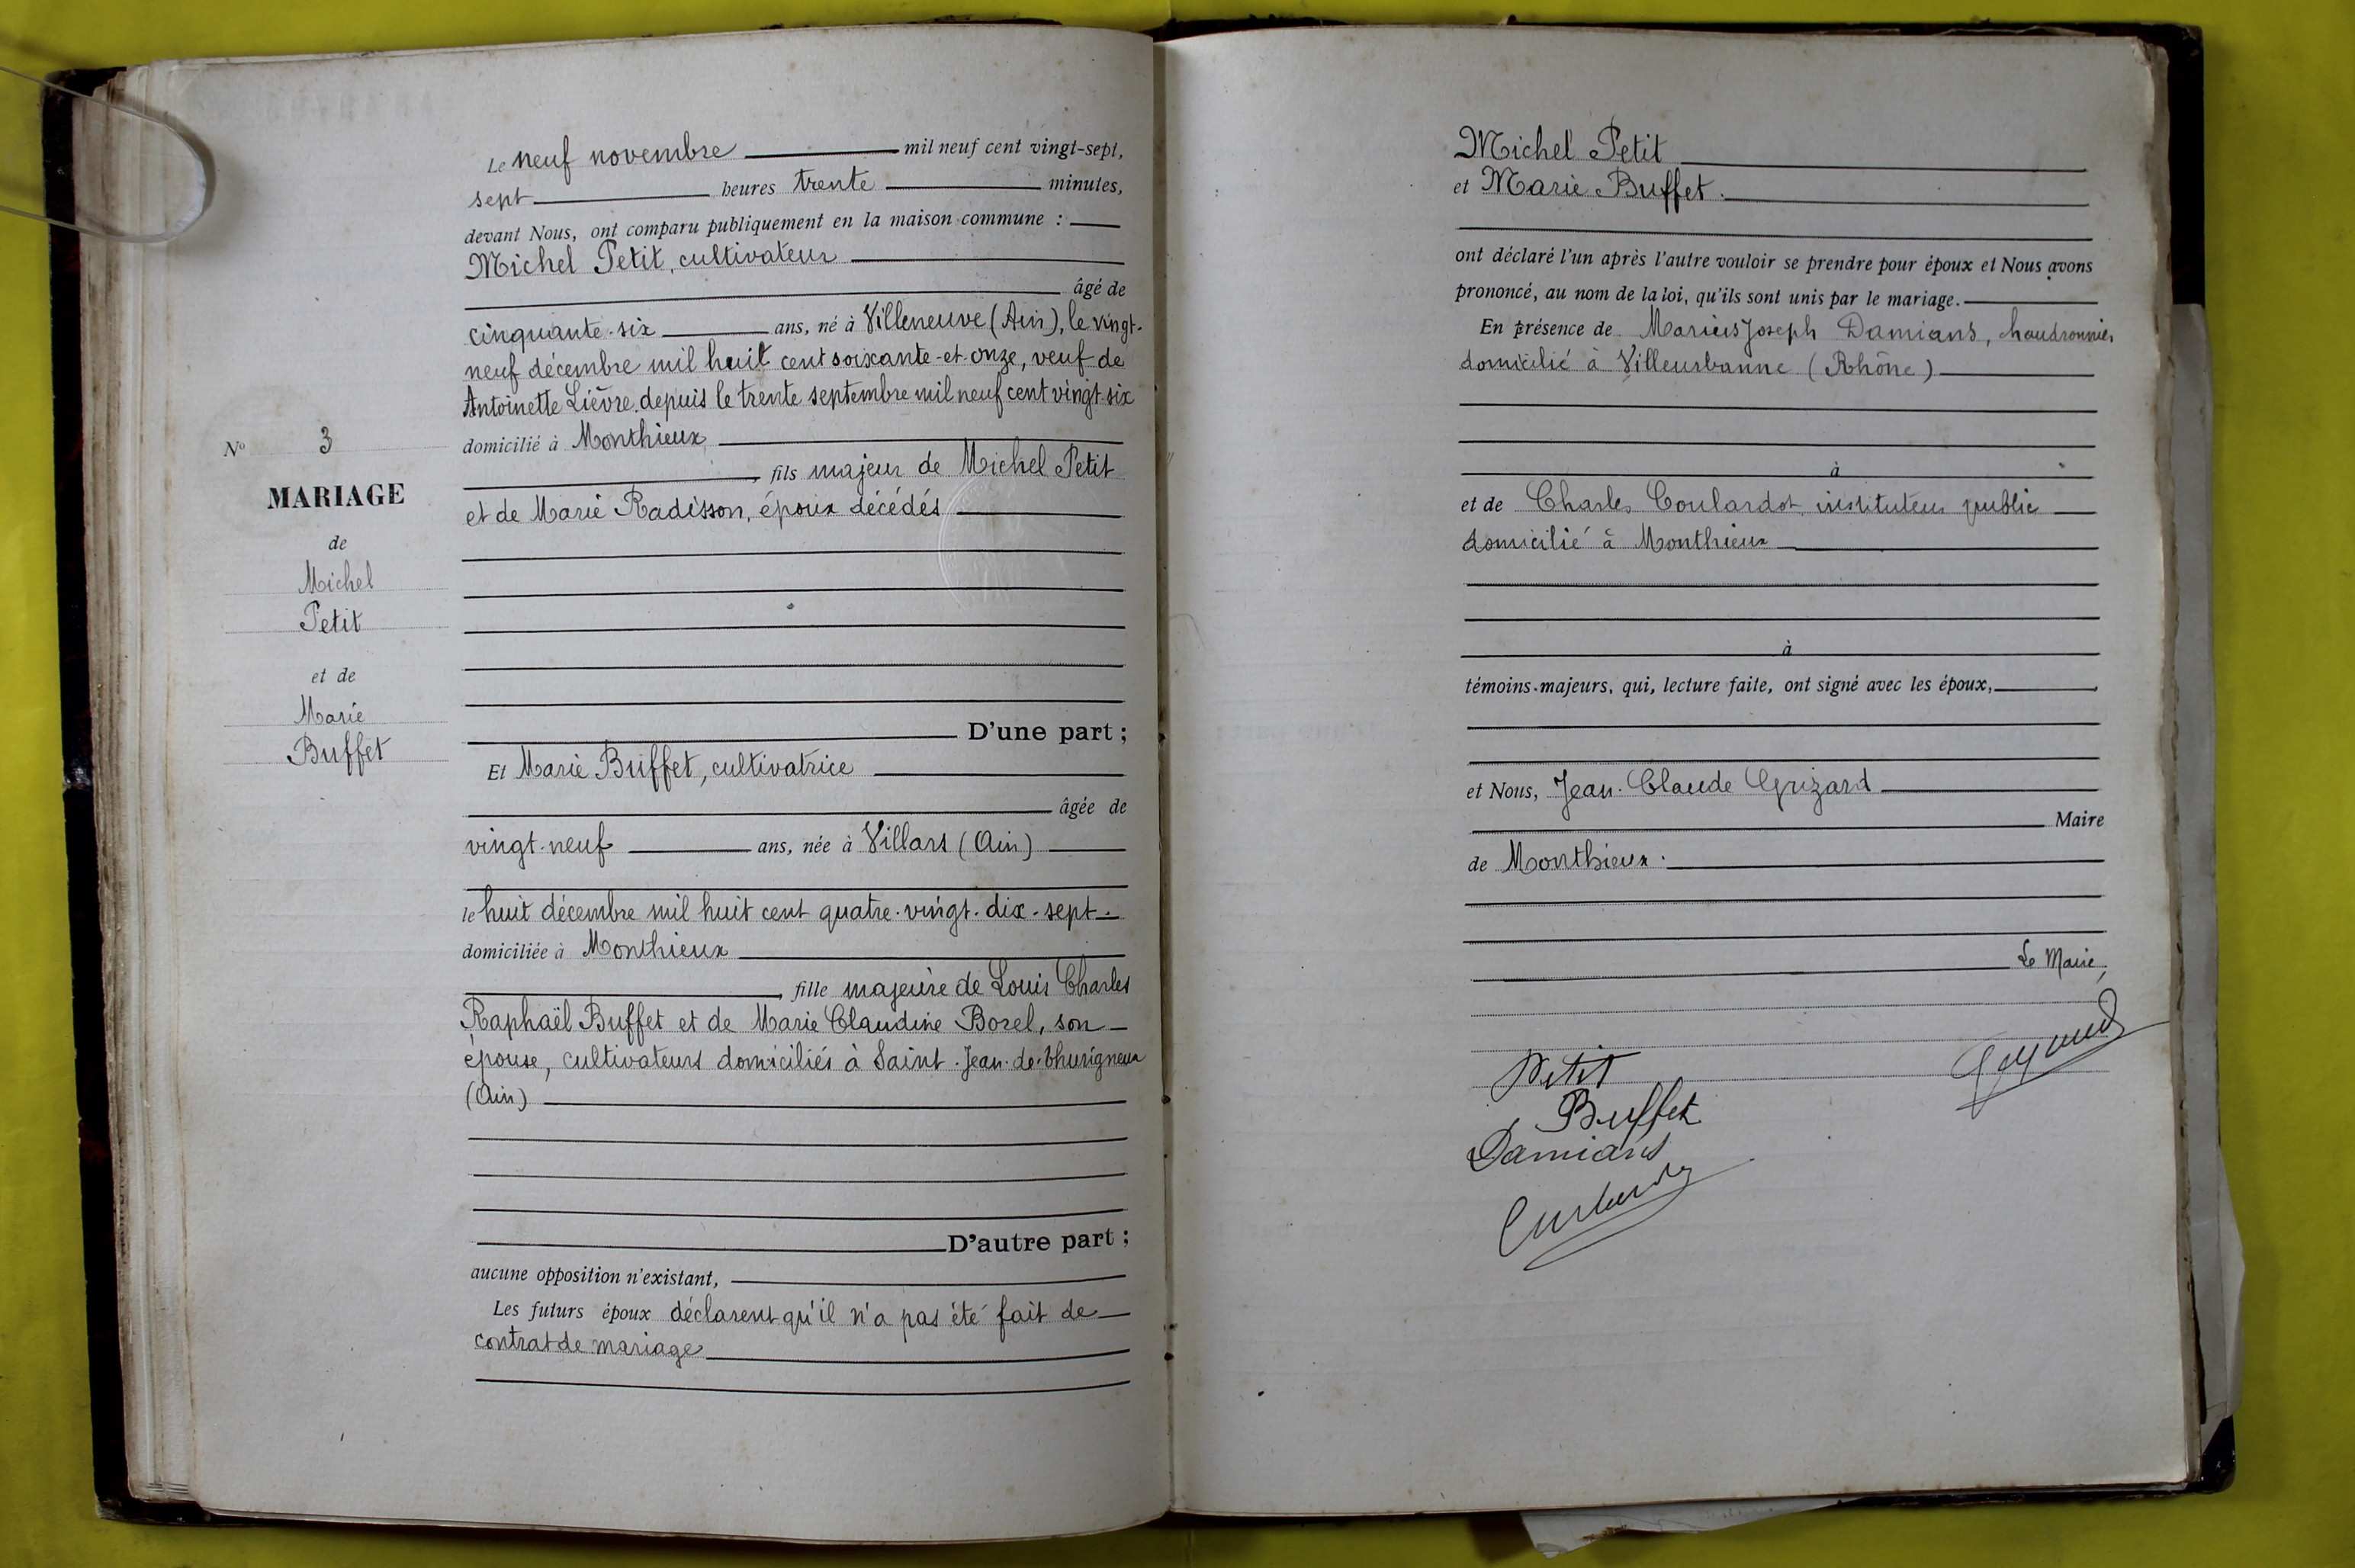 Le neuf novembre mil neuf cent vingt-sept,
sept heures trente minutes,
devant Nous, ont comparu publiquement en la maison commune :
Michel Petit, cultivateur
âgé de
cinquante-six ans, né à Villeneuve (Ain), le vingt-
neuf décembre mil huit cent soixante-et-onze, veuf de
Antoinette Lièvre depuis le trente septembre mil neuf cent vingt-six
N° 3
domicilié à Monthieux
fils majeur de Michel Petit
MARIAGE
et de Marie Radisson, époux décédés
de
Michel
Petit
et de
Marie
Buffet
D'une part ;
Et Marie Buffet, cultivatrice
âgée de
vingt-neuf ans, née à Villars (Ain)
le huit décembre mil huit cent quatre-vingt-dix-sept
domiciliée à Monthieux
fille majeure de Louis Charles
Raphaël Buffet et de Marie Claudine Borel, son
épouse, cultivateurs domiciliés à Saint-Jean-de-Thurigneux
(Ain)
D'autre part ;
aucune opposition n'existant,
Les futurs époux déclarent qu'il n'a pas été fait de
contrat de mariage
Michel Petit
et Marie Buffet.
ont déclaré l'un après l'autre vouloir se prendre pour époux et Nous avons
prononcé, au nom de la loi, qu'ils sont unis par le mariage.
En présence de Marius Joseph Damians, chaudronnier,
domicilié à Villeurbanne (Rhône)
à
et de Charles Coulardot instituteur public
domicilié à Monthieux
à
témoins majeurs, qui, lecture faite, ont signé avec les époux,
et Nous, Jean-Claude Grizard
Maire
de Monthieux.
Le Maire,
Petit
Buffet
Damians